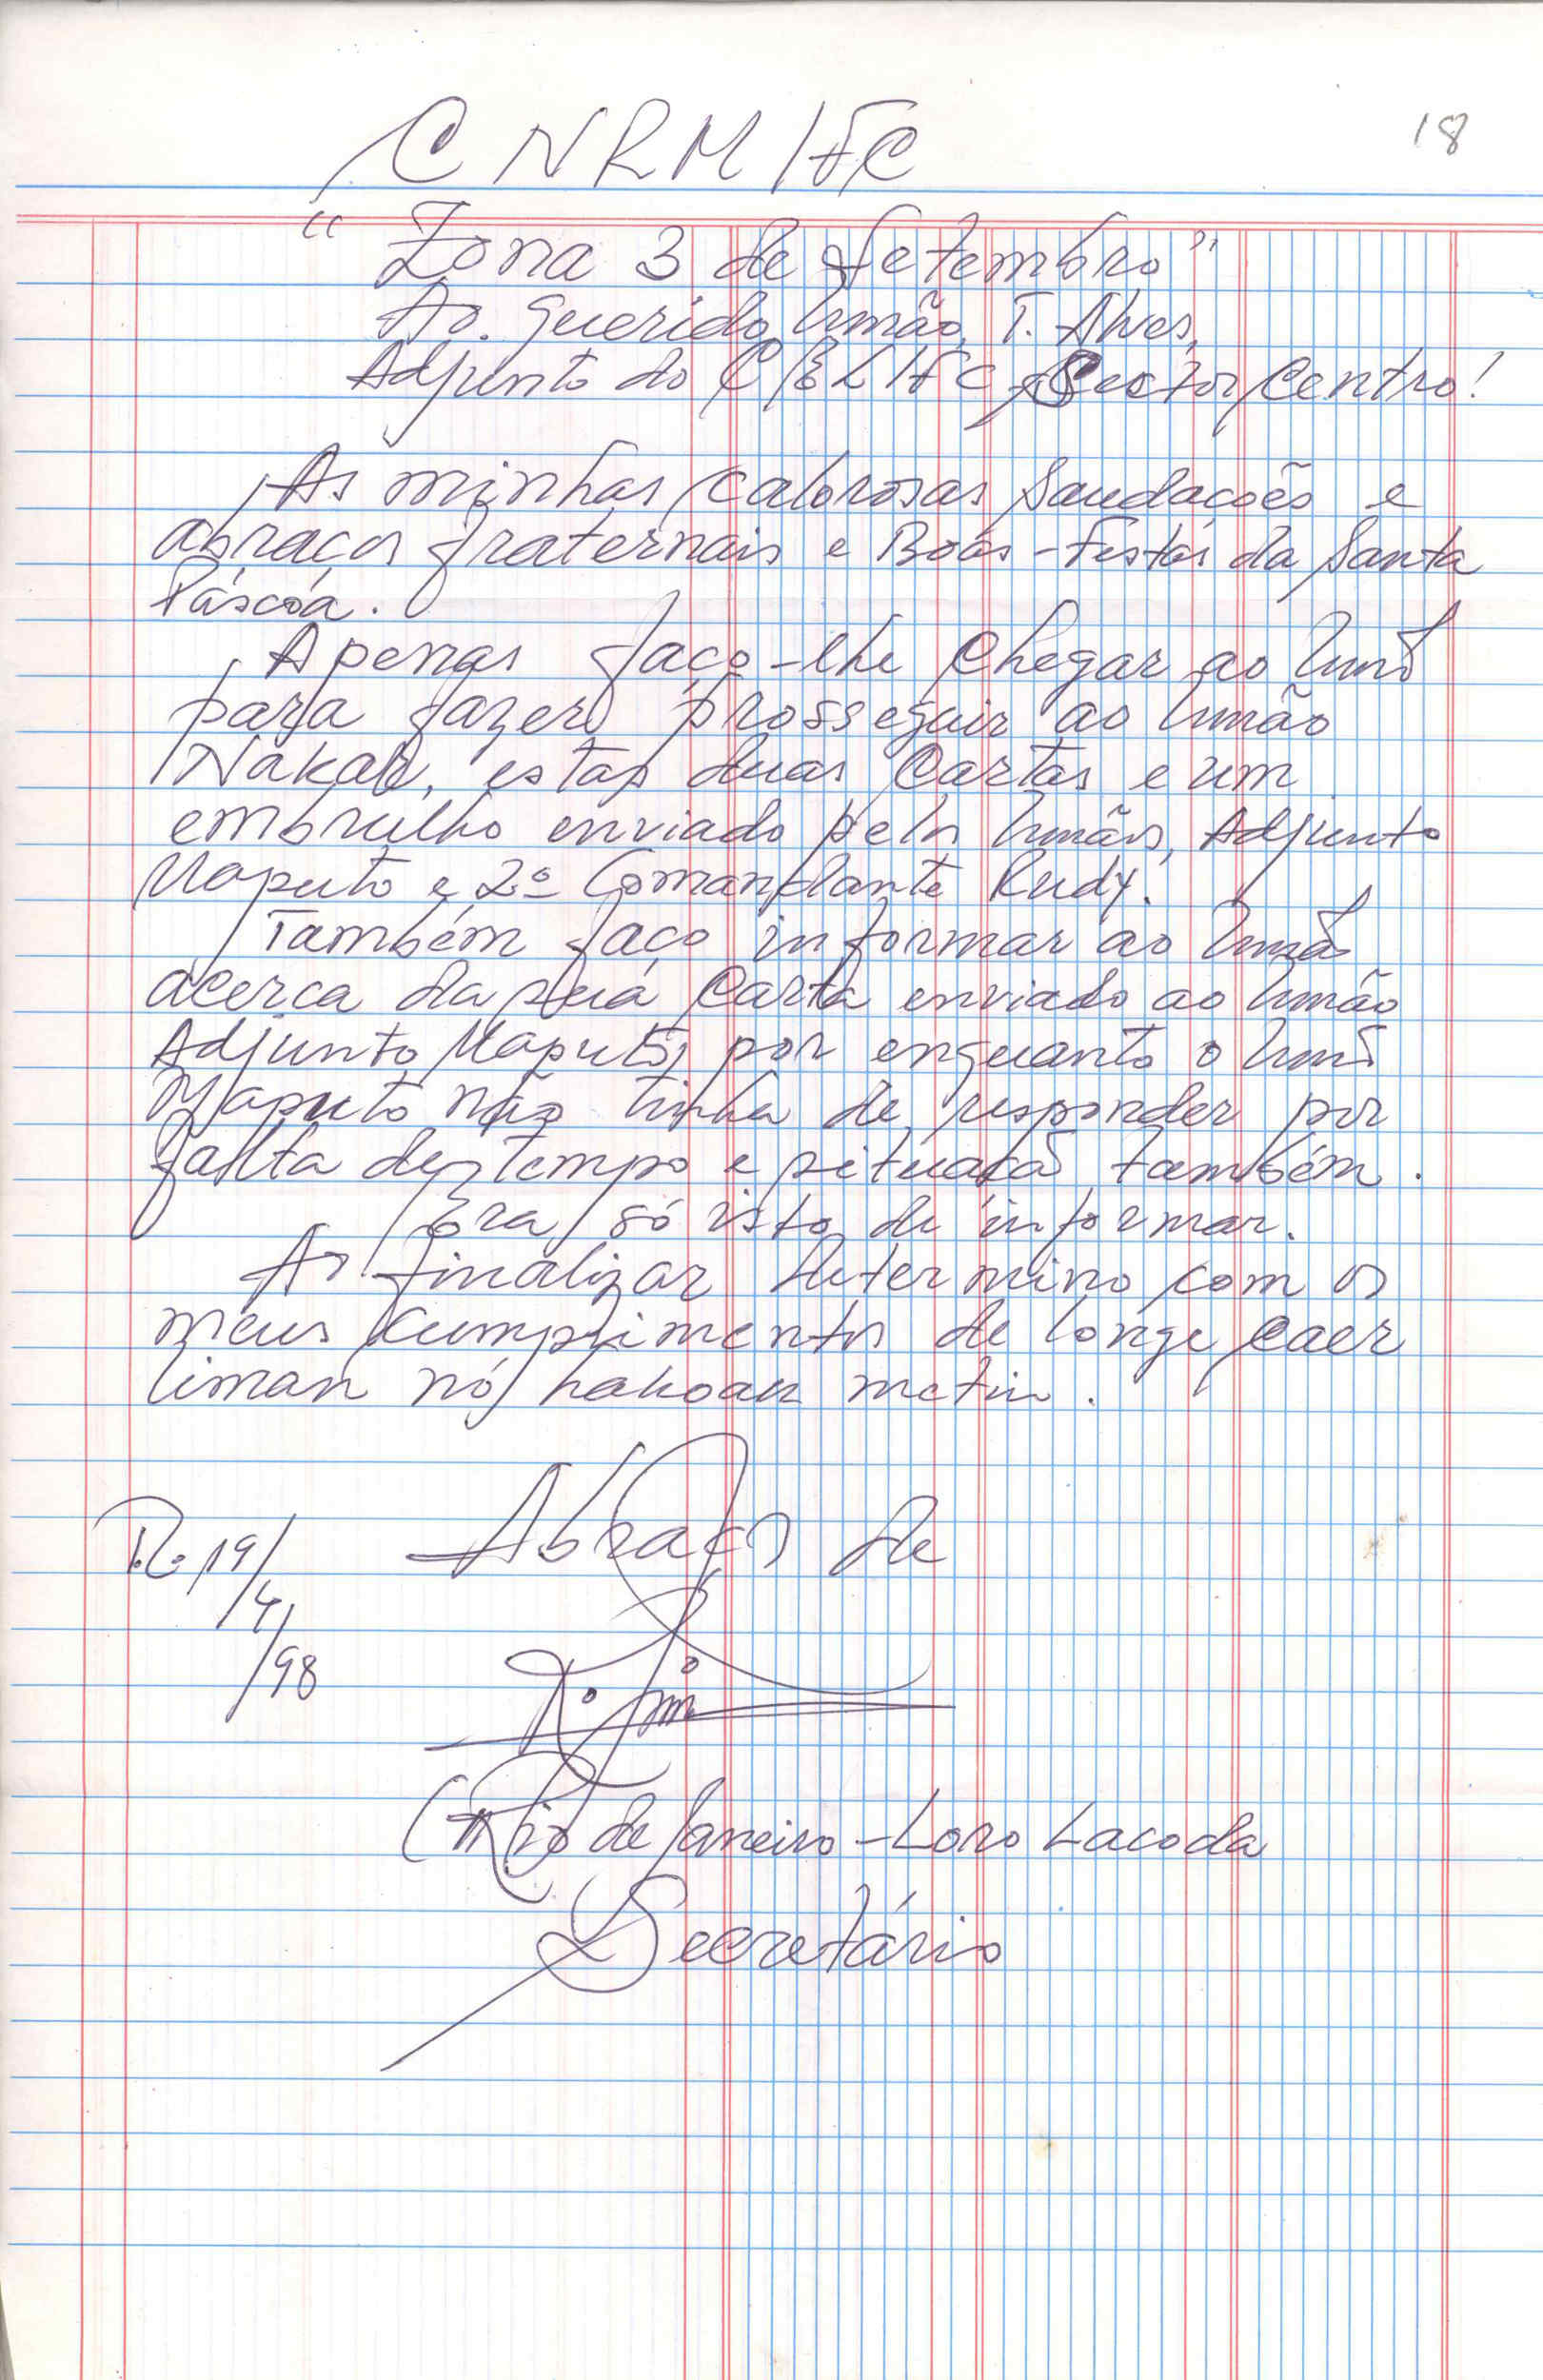 18
CNRM/FC
"Zona 3 de Setembro"
Ao. Querido Irmão, T. Alves,
Adjunto do C/ELIFC Sector Centro!
As minhas calorosas Saudações e
abraços fraternais e Boas-Festas da Santa
Páscoa.
Apenas faço-lhe chegar ao Irmão
para fazer prosseguir ao Irmão
Nakar, estas duas cartas e um
embrulho enviado pelos Irmãos, Adjunto
Maputo e 2º Comandante Rudy.
Também faço informar ao Irmão
acerca da sua Carta enviado ao Irmão
Adjunto Maputo, por enquanto o Irmão
Maputo não tinha de responder por
falta de tempo e situação também.
Era só isto de informar.
Ao finalizar determino com os
meus cumprimentos de longe caer
liman nó hakoak metin.
Abraços de
R. 19/
/4/
/98
(Rio de Janeiro - Loro Lacoda
Secretário